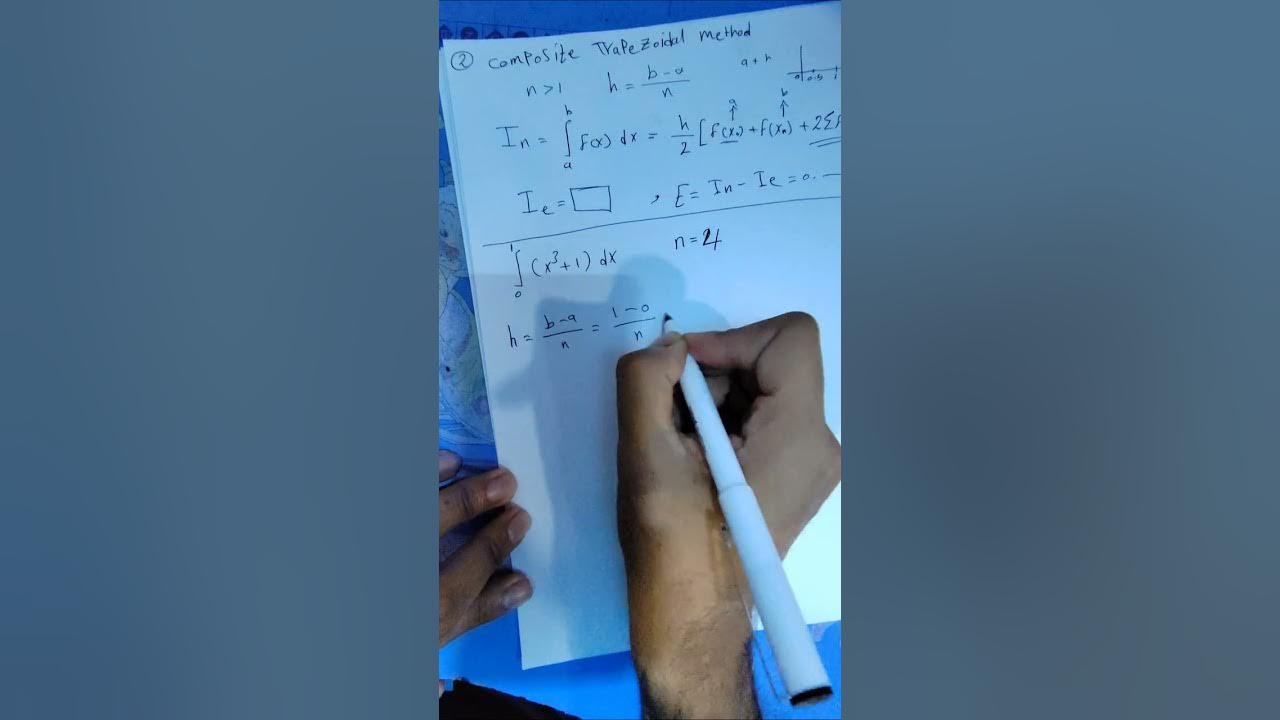 ② composite Trapezoidal method
n > 1 h = b - a / n a + h
0 0.5 1
a b
Iₙ = ∫ₐᵇ f(x) dx = h/2 [f(x₀) + f(xₙ) + 2Σ
Iₑ = □ , E = Iₙ - Iₑ = 0. —
∫₀¹ (x³ + 1) dx n = 4
h = b - a / n = 1 - 0 / n